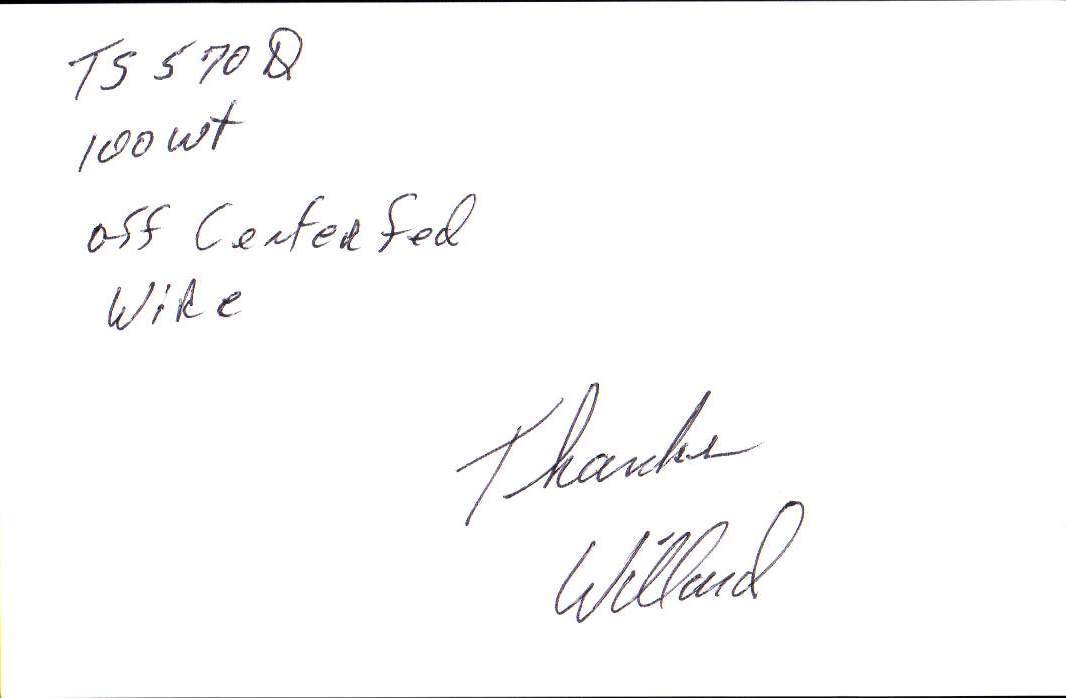 TS 570D
100 wt
off Center fed
Wire
Thanks
Willard